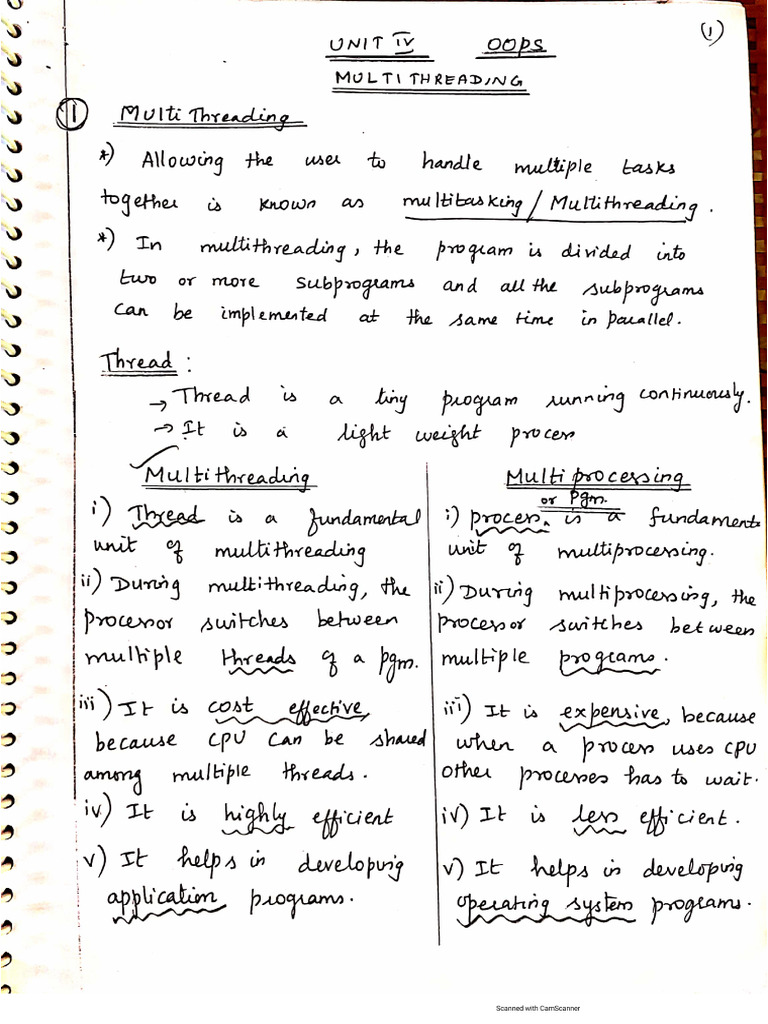 (1)
UNIT IV OOPS
MULTITHREADING
1 Multi Threading
*) Allowing the user to handle multiple tasks
together is known as multitasking / Multithreading.
*) In multithreading, the program is divided into
two or more subprograms and all the subprograms
can be implemented at the same time in parallel.
Thread :
→ Thread is a tiny program running continuously.
→ It is a light weight process
Multithreading
i) Thread is a fundamental
unit of multithreading
ii) During multithreading, the
processor switches between
multiple threads of a pgm.
iii) It is cost effective,
because CPU can be shared
among multiple threads.
iv) It is highly efficient
v) It helps in developing
application programs.
Multiprocessing
or Pgm.
i) process is a fundament
unit of multiprocessing.
ii) During multiprocessing, the
processor switches between
multiple programs.
iii) It is expensive, because
when a process uses CPU
other processes has to wait.
iv) It is less efficient.
v) It helps in developing
operating system programs.
Scanned with CamScanner